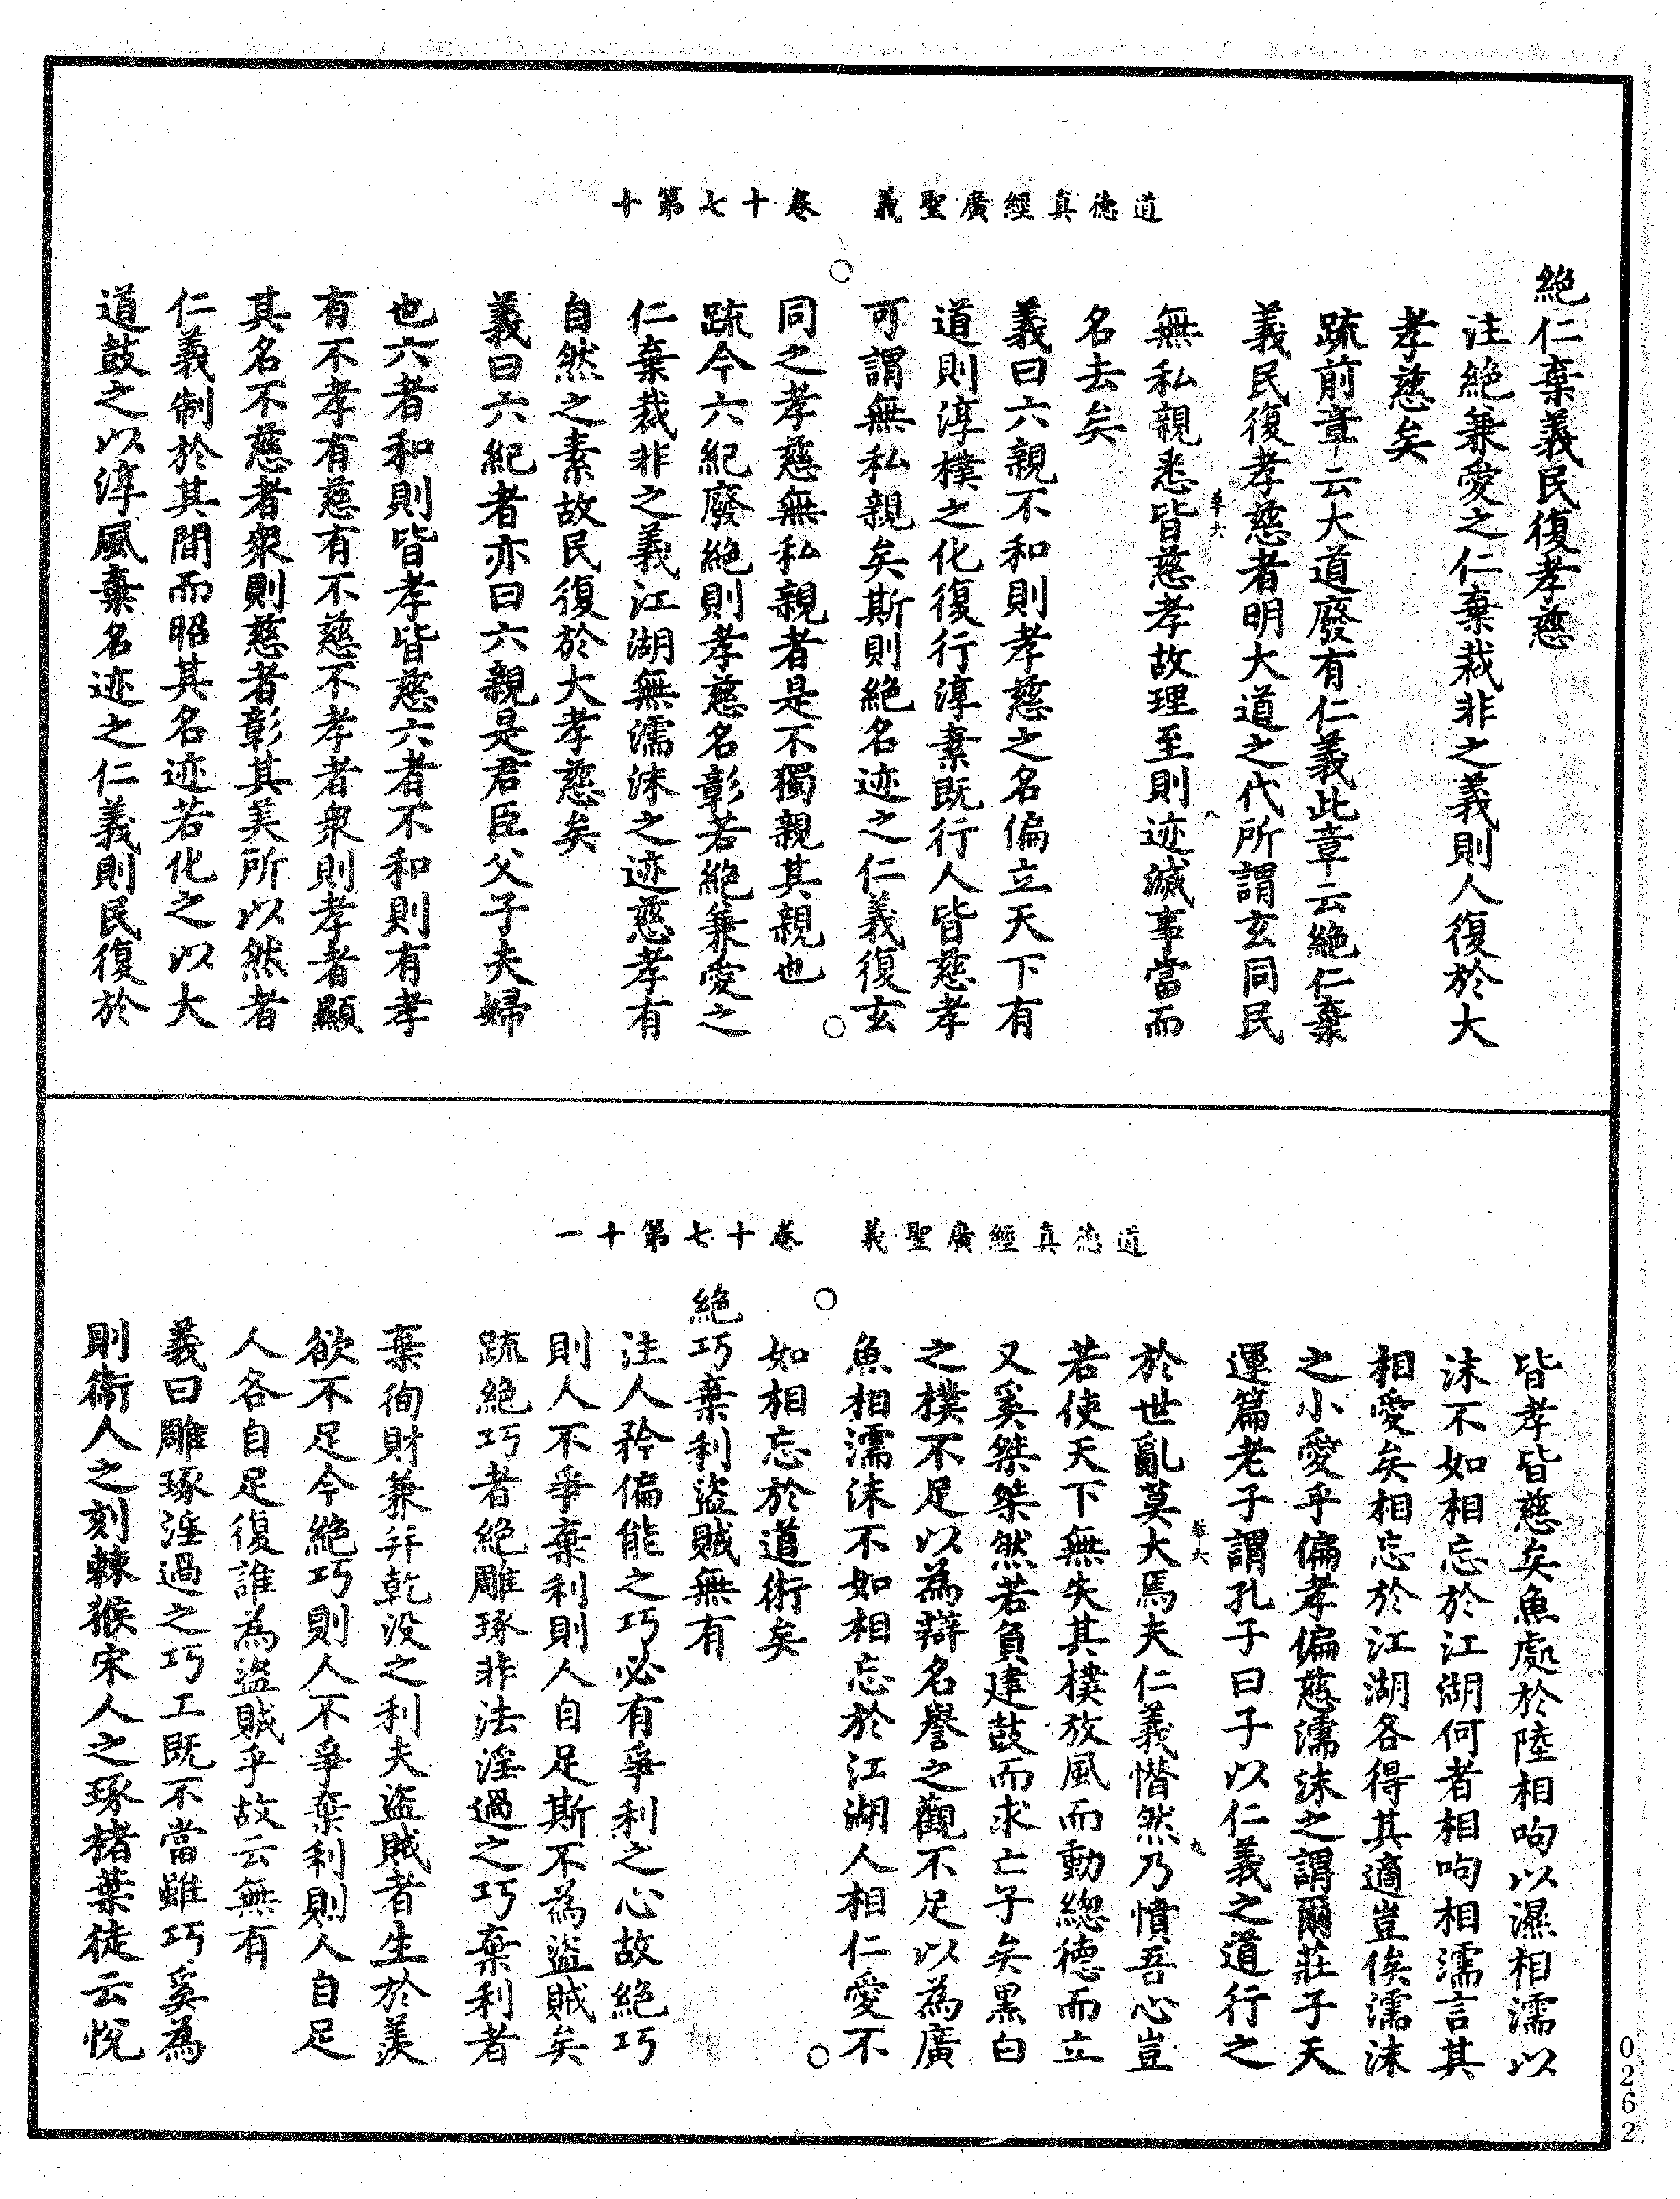 道德真經廣聖義　卷十七第十
絕仁棄義民復孝慈
注絕兼愛之仁棄裁非之義則人復於大
孝慈矣
疏前章云大道廢有仁義此章云絕仁棄
義民復孝慈者明大道之代所謂玄同民
無私親悉皆慈孝故理至則迹滅事當而
名去矣
義曰六親不和則孝慈之名偏立天下有
道則淳樸之化復行淳素既行人皆慈孝
可謂無私親矣斯則絕名迹之仁義復玄
同之孝慈無私親者是不獨親其親也
疏今六紀廢絕則孝慈名彰若絕兼愛之
仁棄裁非之義江湖無濡沫之迹慈孝有
自然之素故民復於大孝慈矣
義曰六紀者亦曰六親是君臣父子夫婦
也六者和則皆孝皆慈六者不和則有孝
有不孝有慈有不慈不孝者衆則孝者顯
其名不慈者衆則慈者彰其美所以然者
仁義制於其間而昭其名迹若化之以大
道鼓之以淳風棄名迹之仁義則民復於
道德真經廣聖義　卷十七第十一
皆孝皆慈矣魚處於陸相呴以濕相濡以
沫不如相忘於江湖何者相呴相濡言其
相愛矣相忘於江湖各得其適豈俟濡沫
之小愛乎偏孝偏慈濡沫之謂爾莊子天
運篇老子謂孔子曰子以仁義之道行之
於世亂莫大焉夫仁義憯然乃憤吾心豈
若使天下無失其樸放風而動總德而立
又奚桀桀然若負建鼓而求亡子矣黑白
之樸不足以為辯名譽之觀不足以為廣
魚相濡沫不如相忘於江湖人相仁愛不
如相忘於道術矣
絕巧棄利盜賊無有
注人矜偏能之巧必有爭利之心故絕巧
則人不爭棄利則人自足斯不為盜賊矣
疏絕巧者絕雕琢非法淫過之巧棄利者
棄徇財兼并乾没之利夫盜賊者生於羨
欲不足今絕巧則人不爭棄利則人自足
人各自足復誰為盜賊乎故云無有
義曰雕琢淫過之巧工既不當雖巧奚為
則衛人之刻棘猴宋人之琢楮葉徒云悅
0262